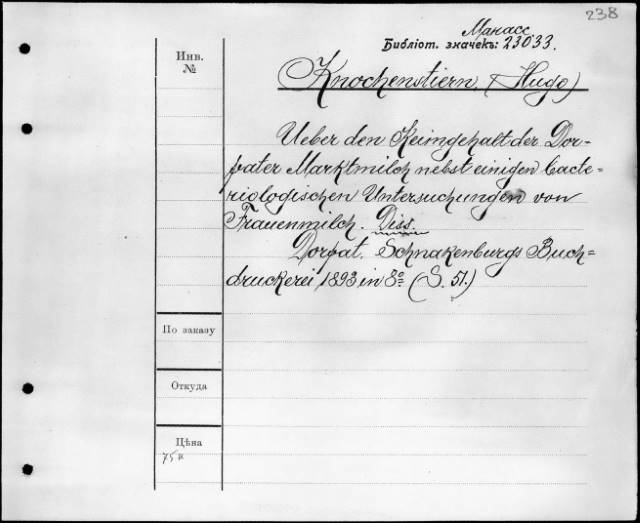 238
Манасс
Библіот. значекъ: 23033.
Инв.
№
Knochenstiern (Hugo)
Ueber den Keimgehalt der Dor-
pater Marktmilch nebst einigen bacte-
riologischen Untersuchungen von
Frauenmilch. Diss.
Dorpat. Schnakenburgs Buch-
druckerei, 1893 in 8º (S. 51.)
По заказу
Откуда
Цѣна
75к